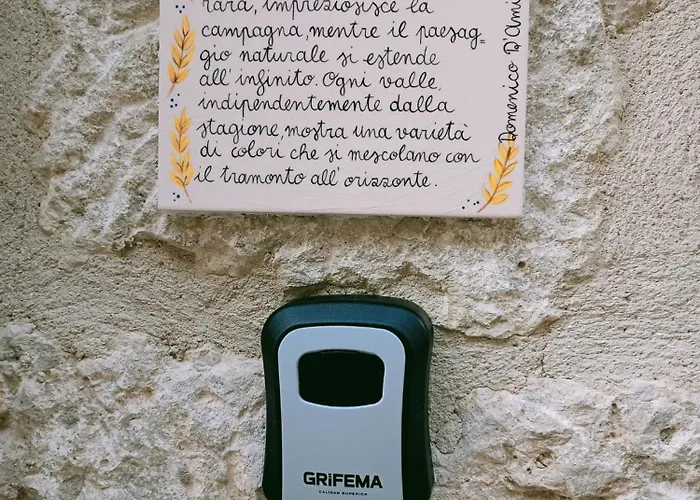 rara, impreziosisce la
campagna, mentre il paesag=
gio naturale si estende
all'infinito. Ogni valle,
indipendentemente dalla
stagione, mostra una varietà
di colori che si mescolano con
il tramonto all'orizzonte.
Domenico D'Ami
GRiFEMA
CALIDAD SUPERIOR